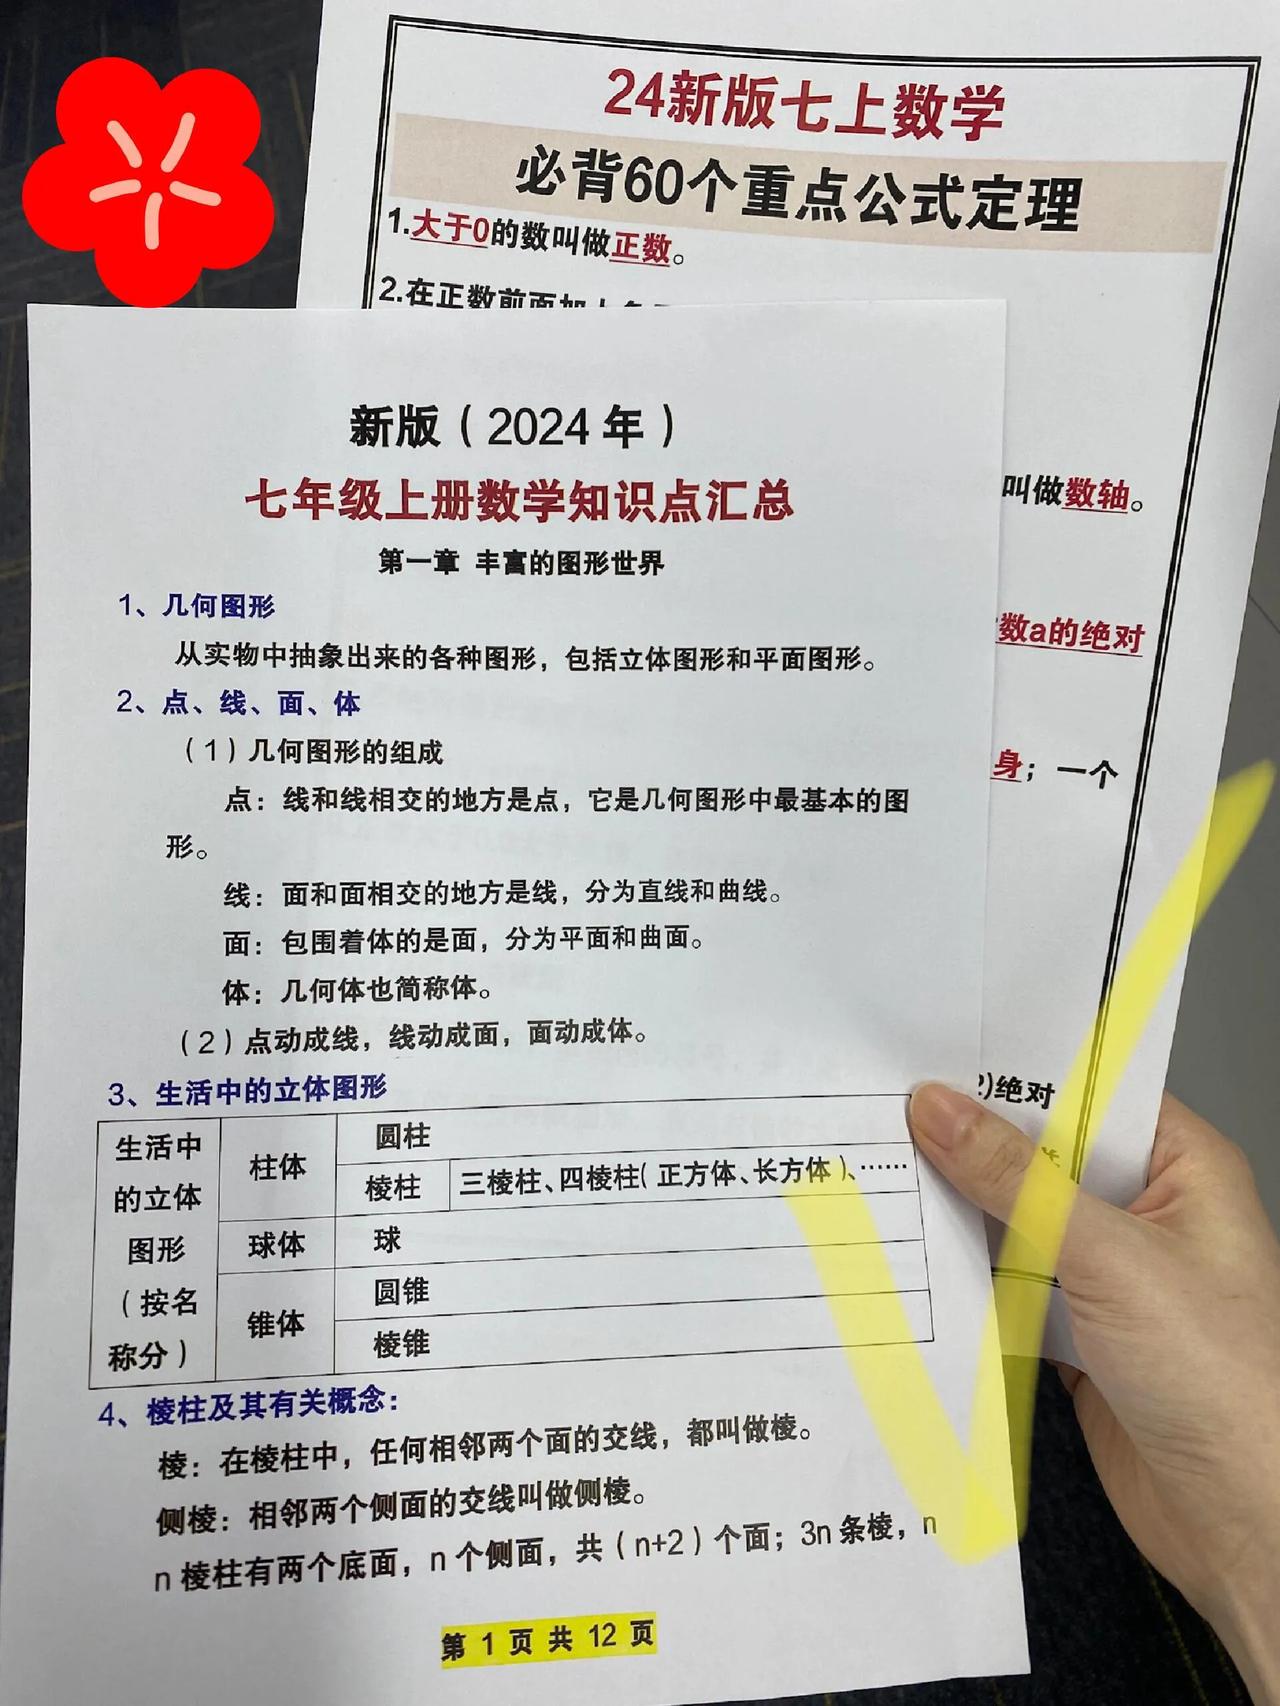 24新版七上数学
必背60个重点公式定理
1.大于0的数叫做正数。
2.在正数前面加上负
叫做数轴。
数a的绝对
身；一个
2)绝对
新版（2024 年）
七年级上册数学知识点汇总
第一章 丰富的图形世界
1、几何图形
从实物中抽象出来的各种图形，包括立体图形和平面图形。
2、点、线、面、体
（1）几何图形的组成
点：线和线相交的地方是点，它是几何图形中最基本的图
形。
线：面和面相交的地方是线，分为直线和曲线。
面：包围着体的是面，分为平面和曲面。
体：几何体也简称体。
（2）点动成线，线动成面，面动成体。
3、生活中的立体图形
生活中
的立体
图形
（按名
称分）
柱体
圆柱
棱柱
三棱柱、四棱柱（正方体、长方体）、……
球体
球
锥体
圆锥
棱锥
4、棱柱及其有关概念：
棱：在棱柱中，任何相邻两个面的交线，都叫做棱。
侧棱：相邻两个侧面的交线叫做侧棱。
n 棱柱有两个底面，n 个侧面，共（n+2）个面；3n 条棱，n
第 1 页 共 12 页